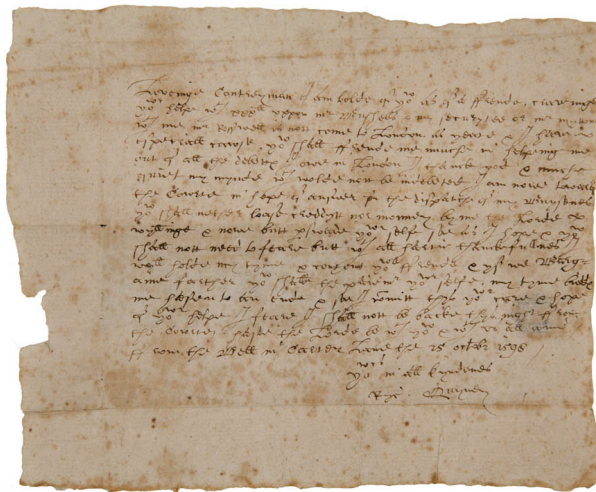 Loveinge Contreyman I am bolde of yow as of a ffrende, craveinge
yowr helpe wth xxxll uppon mr Bushells & my securytee or mr myttons
wth me mr Rosswell is nott come to London as yeate & I have
especiall cawse yow shall ffrende me muche in helpeing me
out of all the debtts I owe in London I thancke god & muche
quiet my mynde wch wolde nott be indebeted I am nowe towards
the Cowrte in hope of answer for the dispatche of my Buysenes
yow shall nether loase creddytt nor monney by me the Lorde
wyllinge & nowe butt pswade yowr selfe soe as I hope & yow
shall nott need to feare but wth all hartie thanckefullnes I
wyll holde my tyme & content yowr ffrende & yf we Bargaine
farther yow shalbe the paiemr yowr selfe my tyme bidds
me hasten to an ende & soe I committ thys yowr care & hope
of yowr helpe I feare I shall nott be backe thys night ffrom
the Cowrte haste the Lorde be wth yow & wth us all amen
ffrom the Bell in Carter Lane the 25 octobr 1598
yowrs in all kyndenes
Ryc. Quyney